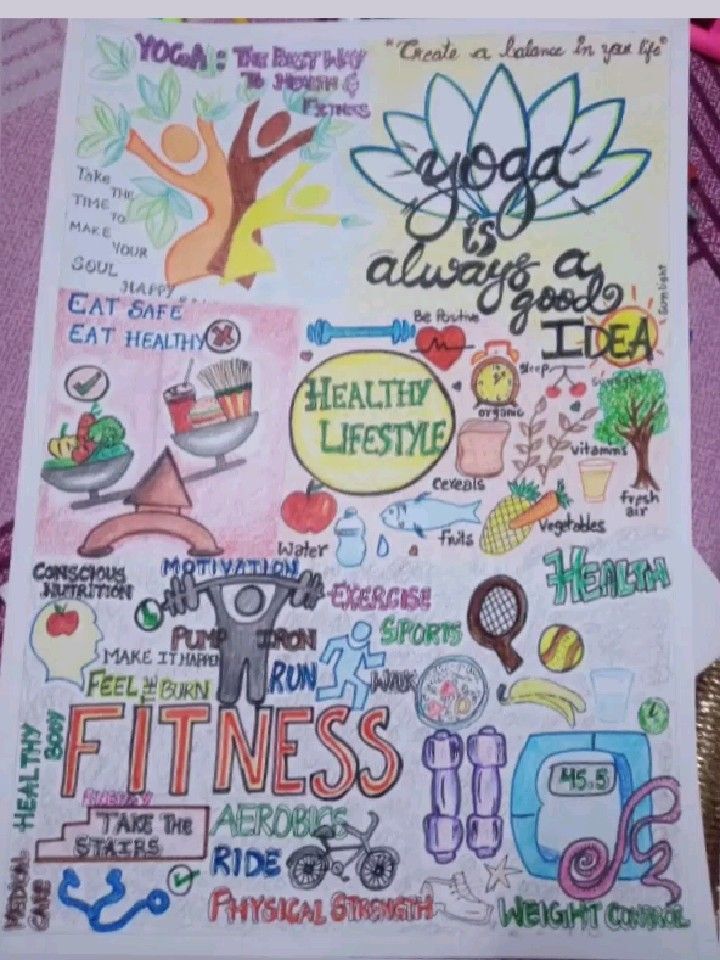 YOGA: THE BEST WAY
TO HEALTH &
FITNESS
"Create a balance in your life"
Take
THE
TIME
TO
MAKE
YOUR
SOUL
HAPPY
yoga
is
always a
good
IDEA
Sunlight
EAT SAFE
EAT HEALTHY
Be Positive
HEALTHY
LIFESTYLE
Sleep
organic
vitamins
fresh
air
Cereals
Water
fruits
Vegetables
CONSCIOUS
NUTRITION
MOTIVATION
EXERCISE
HEALTH
PUMP IRON
SPORTS
MAKE IT HAPPEN
FEEL THE BURN
RUN
WALK
HEALTHY
BODY
FITNESS
45.5
TAKE THE
STAIRS
AEROBICS
RIDE
MEDICAL
CARE
PHYSICAL STRENGTH
WEIGHT CONTROL